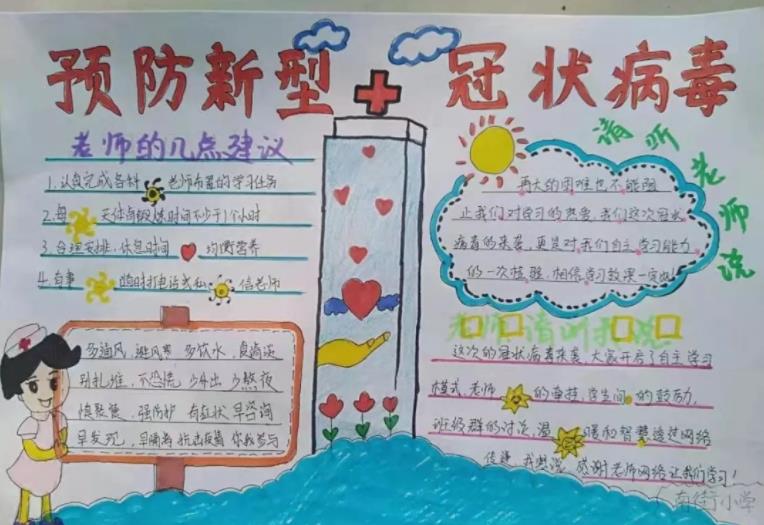 预防新型冠状病毒
老师的几点建议
1.认真完成各科老师布置的学习任务
2.每天体育锻炼时间不少于1个小时
3.合理安排,休息时间 均衡营养
4.有事 随时打电话或私信老师
多通风,避风寒 多饮水,食清淡
别扎堆,不恐慌 少外出 少熬夜
慎聚餐,强防护 有症状早咨询
早发现,早隔离 抗击疫情 你我参与
请听老师说
再大的困难也不能阻
止我们对学习的热爱,我们这次冠状
病毒的来袭,更是对我们自主学习能力
的一次检验,相信学习效果一定
老师请听我说
这次的冠状病毒来袭,大家开启了自主学习
模式,老师的牵挂,学生间的鼓励,
班级群的讨论,温暖和智慧透过网络
传递 我想说 感谢老师网络让我们学习!
南街小学